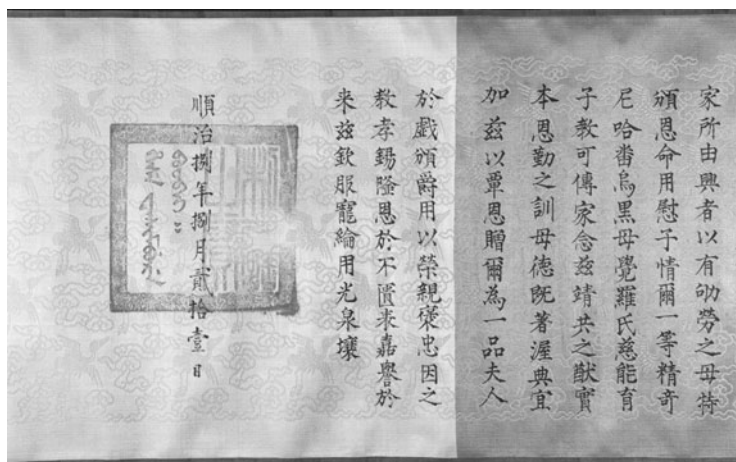 家所由興者以有劬勞之母特
頒恩命用慰子情爾一等精奇
尼哈番烏黑母覺羅氏慈能育
子教可傳家念茲靖共之猷實
本恩勤之訓母德既著渥典宜
加茲以覃恩贈爾為一品夫人
於戲頒爵用以榮親褒忠因之
教孝錫隆恩於不匱永嘉譽於
来茲欽服寵綸用光泉壤
順治捌年捌月貳拾壹日